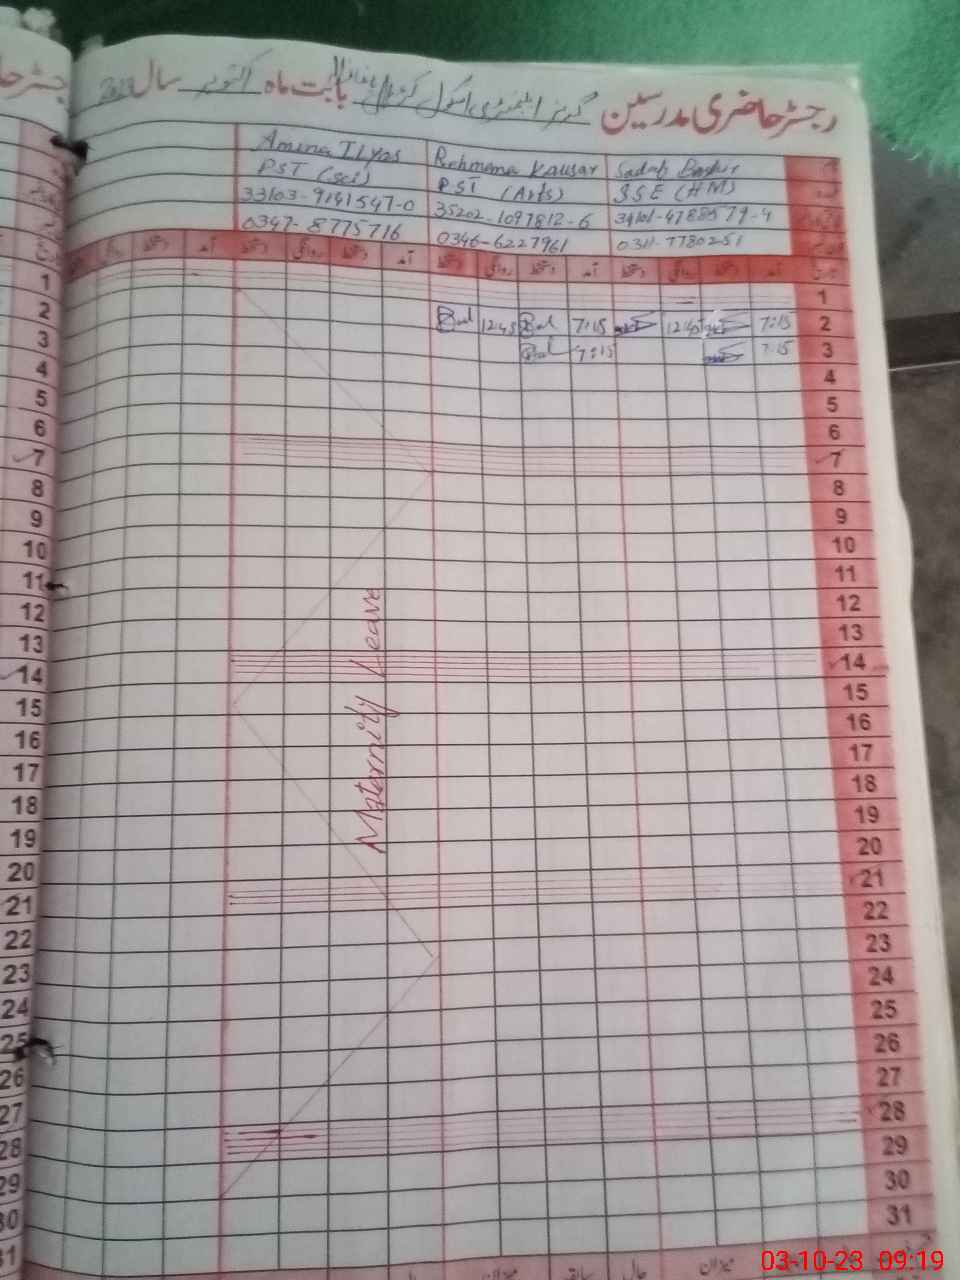 رجسٹر حاضری مدرسین گرلز ایلیمنٹری سکول بابت ماہ اکتوبر سال 2023
Amina Ilyas Rehmana Kausar Sadaf Bashir
PST (Sci) PST (Arts) SSE (HM)
33103-9141547-0 35202-1097812-6 34101-4788579-4
0347-8775716 0346-6227961 0311-7780251
تاریخ آمد دستخط روانگی دستخط آمد دستخط روانگی دستخط آمد دستخط روانگی دستخط آمد دستخط روانگی
1 1
2 12:45 7:15 12:45 7:15 2
3 7:15 7:15 3
4 4
5 5
6 6
7 7
8 8
9 9
10 10
11 11
12 12
13 13
14 14
15 15
16 16
17 17
18 18
19 19
20 20
21 21
22 22
23 23
24 24
25 25
26 26
27 27
28 28
29 29
30 30
31 31
Maternity Leave
میزان حال سابقہ میزان
03-10-23 09:19